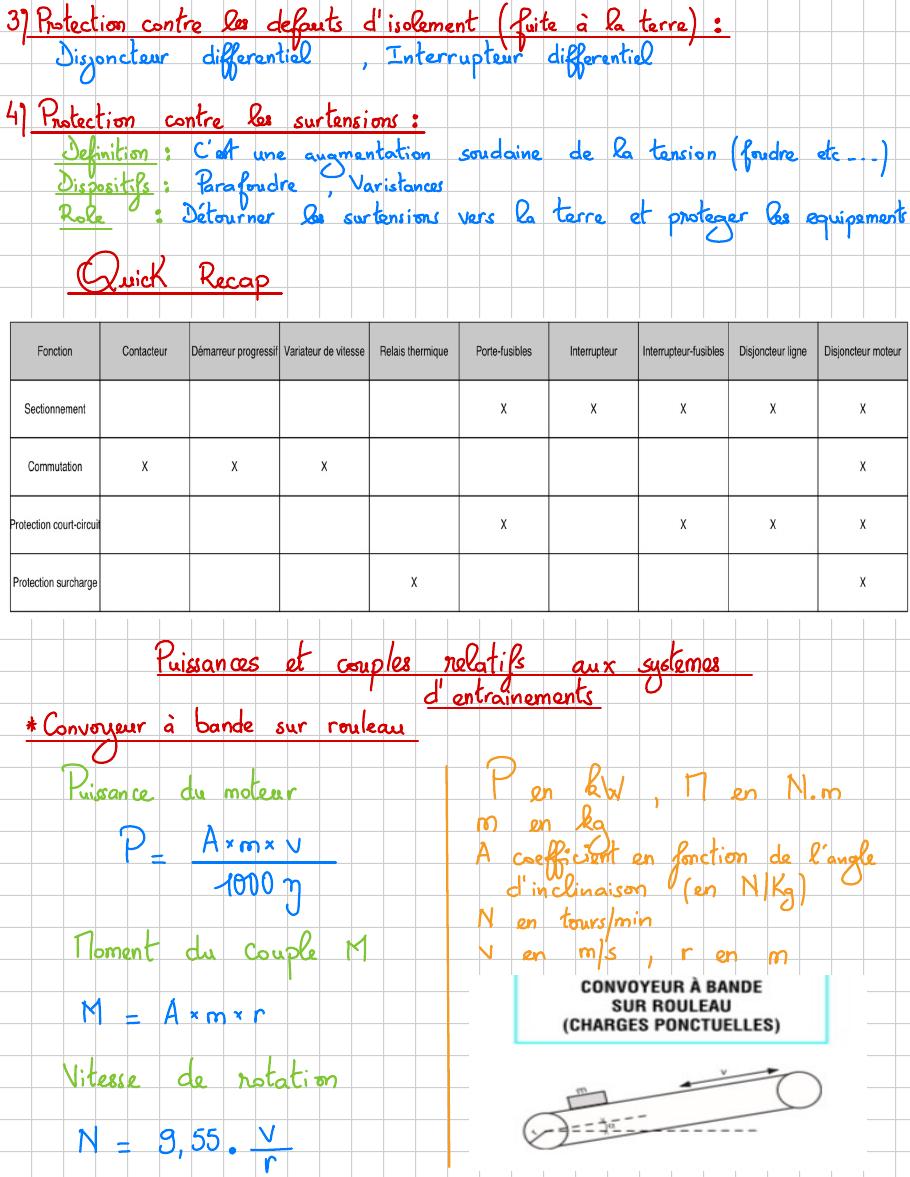 3) Protection contre les defauts d'isolement (fuite à la terre) :
Disjoncteur differentiel , Interrupteur differentiel
4) Protection contre les surtensions :
Definition : C'est une augmentation soudaine de la tension (foudre etc ...)
Dispositifs : Parafoudre , Varistances
Role : Détourner les surtensions vers la terre et proteger les equipements
Quick Recap
Fonction Contacteur Démarreur progressif Variateur de vitesse Relais thermique Porte-fusibles Interrupteur Interrupteur-fusibles Disjoncteur ligne Disjoncteur moteur
Sectionnement X X X X X
Commutation X X X X
Protection court-circuit X X X X
Protection surcharge X X
Puissances et couples relatifs aux systemes
d'entrainements
* Convoyeur à bande sur rouleau
Puissance du moteur
P = A × m × v / 1000 η
Moment du couple M
M = A × m × r
Vitesse de rotation
N = 9,55 . v / r
P en kW , M en N.m
m en kg
A coefficient en fonction de l'angle
d'inclinaison (en N/Kg)
N en tours/min
v en m/s , r en m
CONVOYEUR À BANDE
SUR ROULEAU
(CHARGES PONCTUELLES)
v
m
r